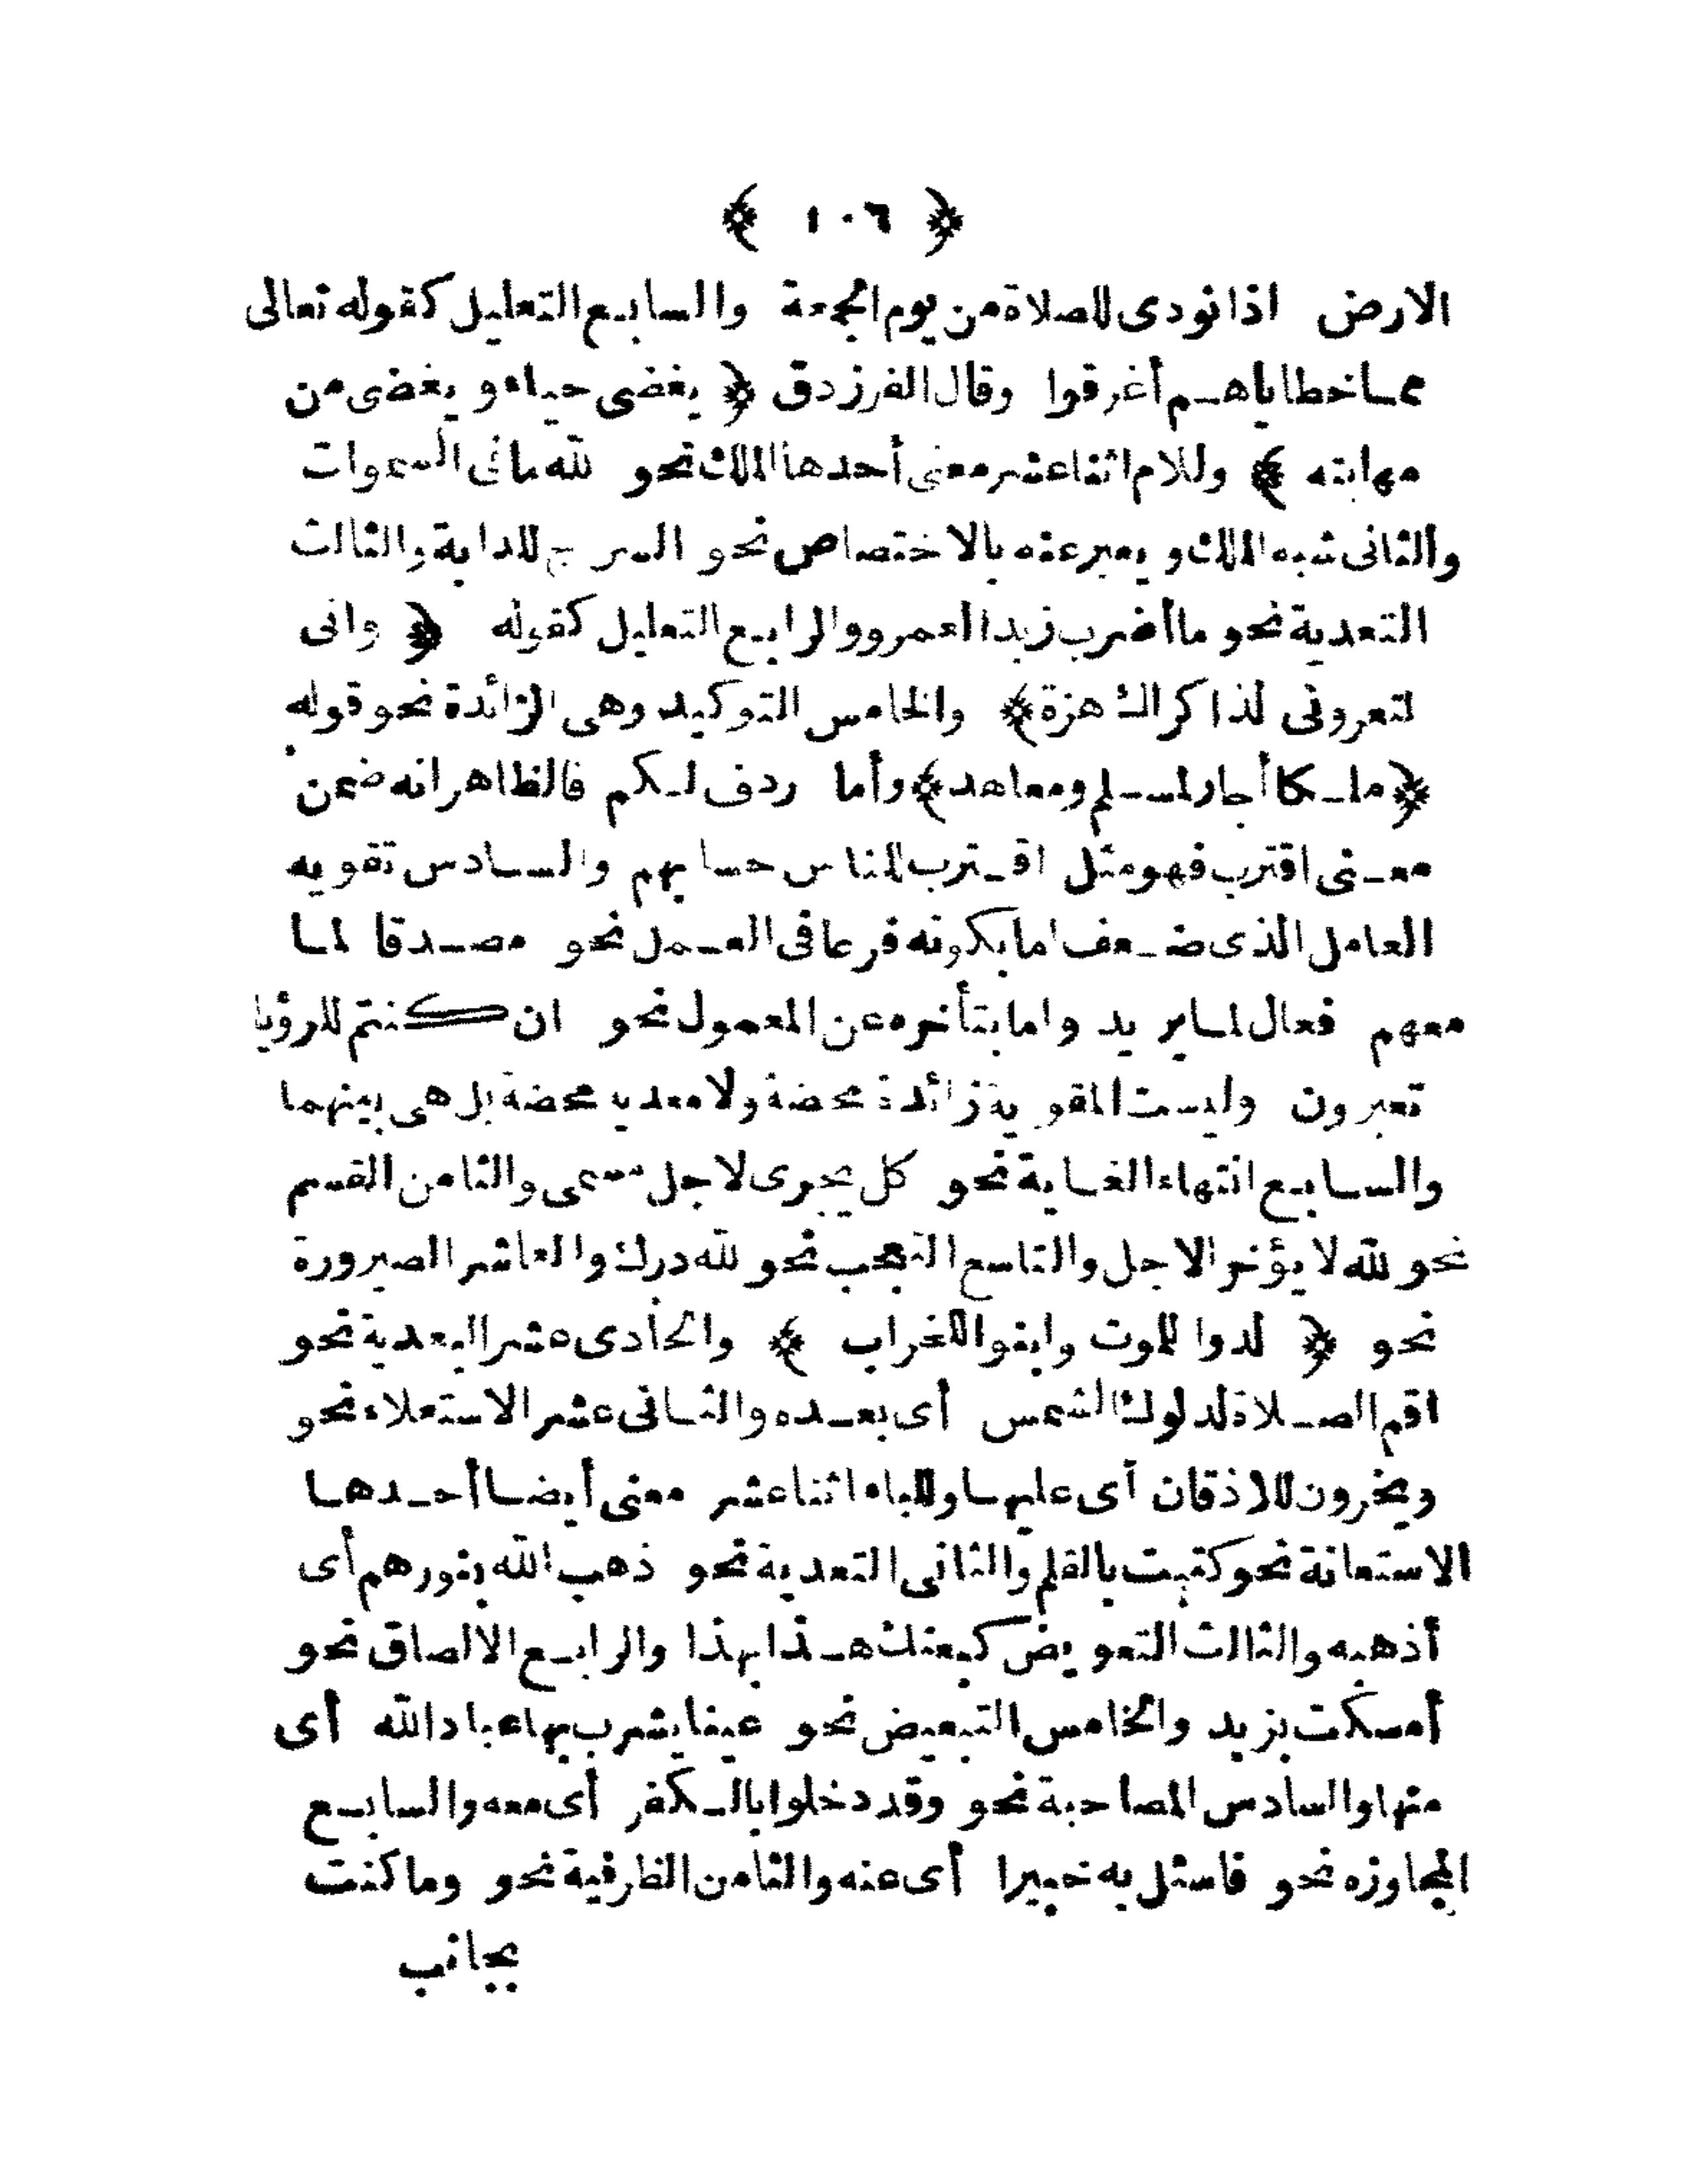 ﴿ ١٠٦ ﴾
الارض اذا نودى للصلاة من يوم الجمعة والسابع التعليل كقوله تعالى
مما خطاياهم أغرقوا وقال الفرزدق ﴿ يغضى حياء ويغضى من
مهابته ﴾ وللام اثنا عشر معنى أحدها الملك نحو لله ما فى السموات
والثانى شبه الملك ويعبر عنه بالاختصاص نحو السرج للدابة والثالث
التعدية نحو ما أضرب زيدا لعمرو والرابع التعليل كقوله ﴿ وانى
لتعرونى لذكراك هزة ﴾ والخامس التوكيد وهى الزائدة نحو قوله
﴿ ملكا أجار لمسلم ومعاهد ﴾ وأما ردف لكم فالظاهر انه ضمن
معنى اقترب فهو مثل اقترب للناس حسابهم والسادس تقويه
العامل الذى ضعف اما بكونه فرعا فى العمل نحو مصدقا لما
معهم فعال لما يريد واما بتأخره عن المعمول نحو ان كنتم للرؤيا
تعبرون وليست المقوية زائدة محضة ولا معديه محضة بل هى بينهما
والسابع انتهاء الغاية نحو كل يجرى لاجل مسمى والثامن القسم
نحو لله لا يؤخر الاجل والتاسع التعجب نحو لله درك والعاشر الصيرورة
نحو ﴿ لدوا للموت وابنوا للخراب ﴾ والحادى عشر البعدية نحو
اقم الصلاة لدلوك الشمس أى بعده والثانى عشر الاستعلاء نحو
ويخرون للاذقان أى عليها وللباء اثنا عشر معنى أيضا أحدها
الاستعانة نحو كتبت بالقلم والثانى التعدية نحو ذهب الله بنورهم أى
أذهبه والثالث التعويض كبعتك هذا بهذا والرابع الالصاق نحو
أمسكت بزيد والخامس التبعيض نحو عينا يشرب بها عباد الله أى
منها والسادس المصاحبة نحو وقد دخلوا بالكفر أى معه والسابع
المجاوزه نحو فاسئل به خبيرا أى عنه والثامن الظرفية نحو وما كنت
بجانب